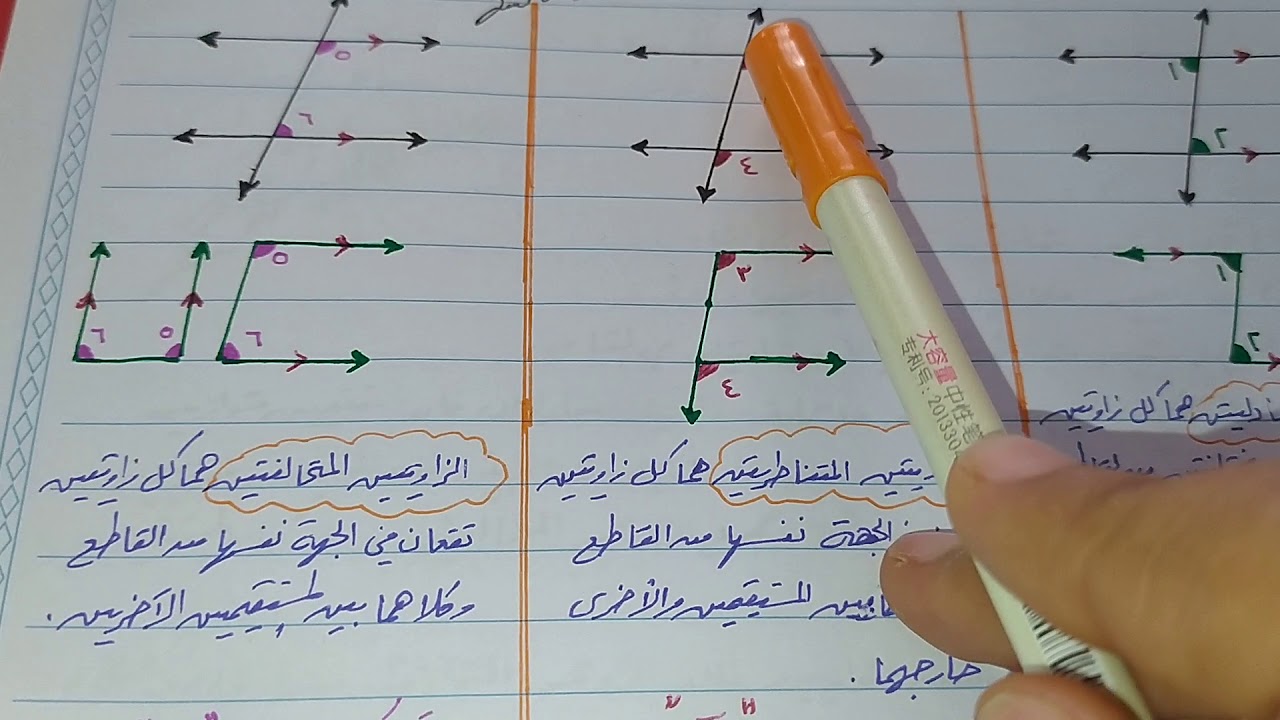 ١
٢
١
٢
هما كل زاويتين
٤
٣
٤
المتناظرتين هما كل زاويتين
الجهة نفسها من القاطع
بين المستقيمين والأخرى
خارجهما .
٥
٦
٥
٦
٥
٦
الزاويتين المتحالفتين هما كل زاويتين
تقعان في الجهة نفسها من القاطع
وكلاهما بين المستقيمين الآخريين .
大容量 中性笔
专利号: 201330